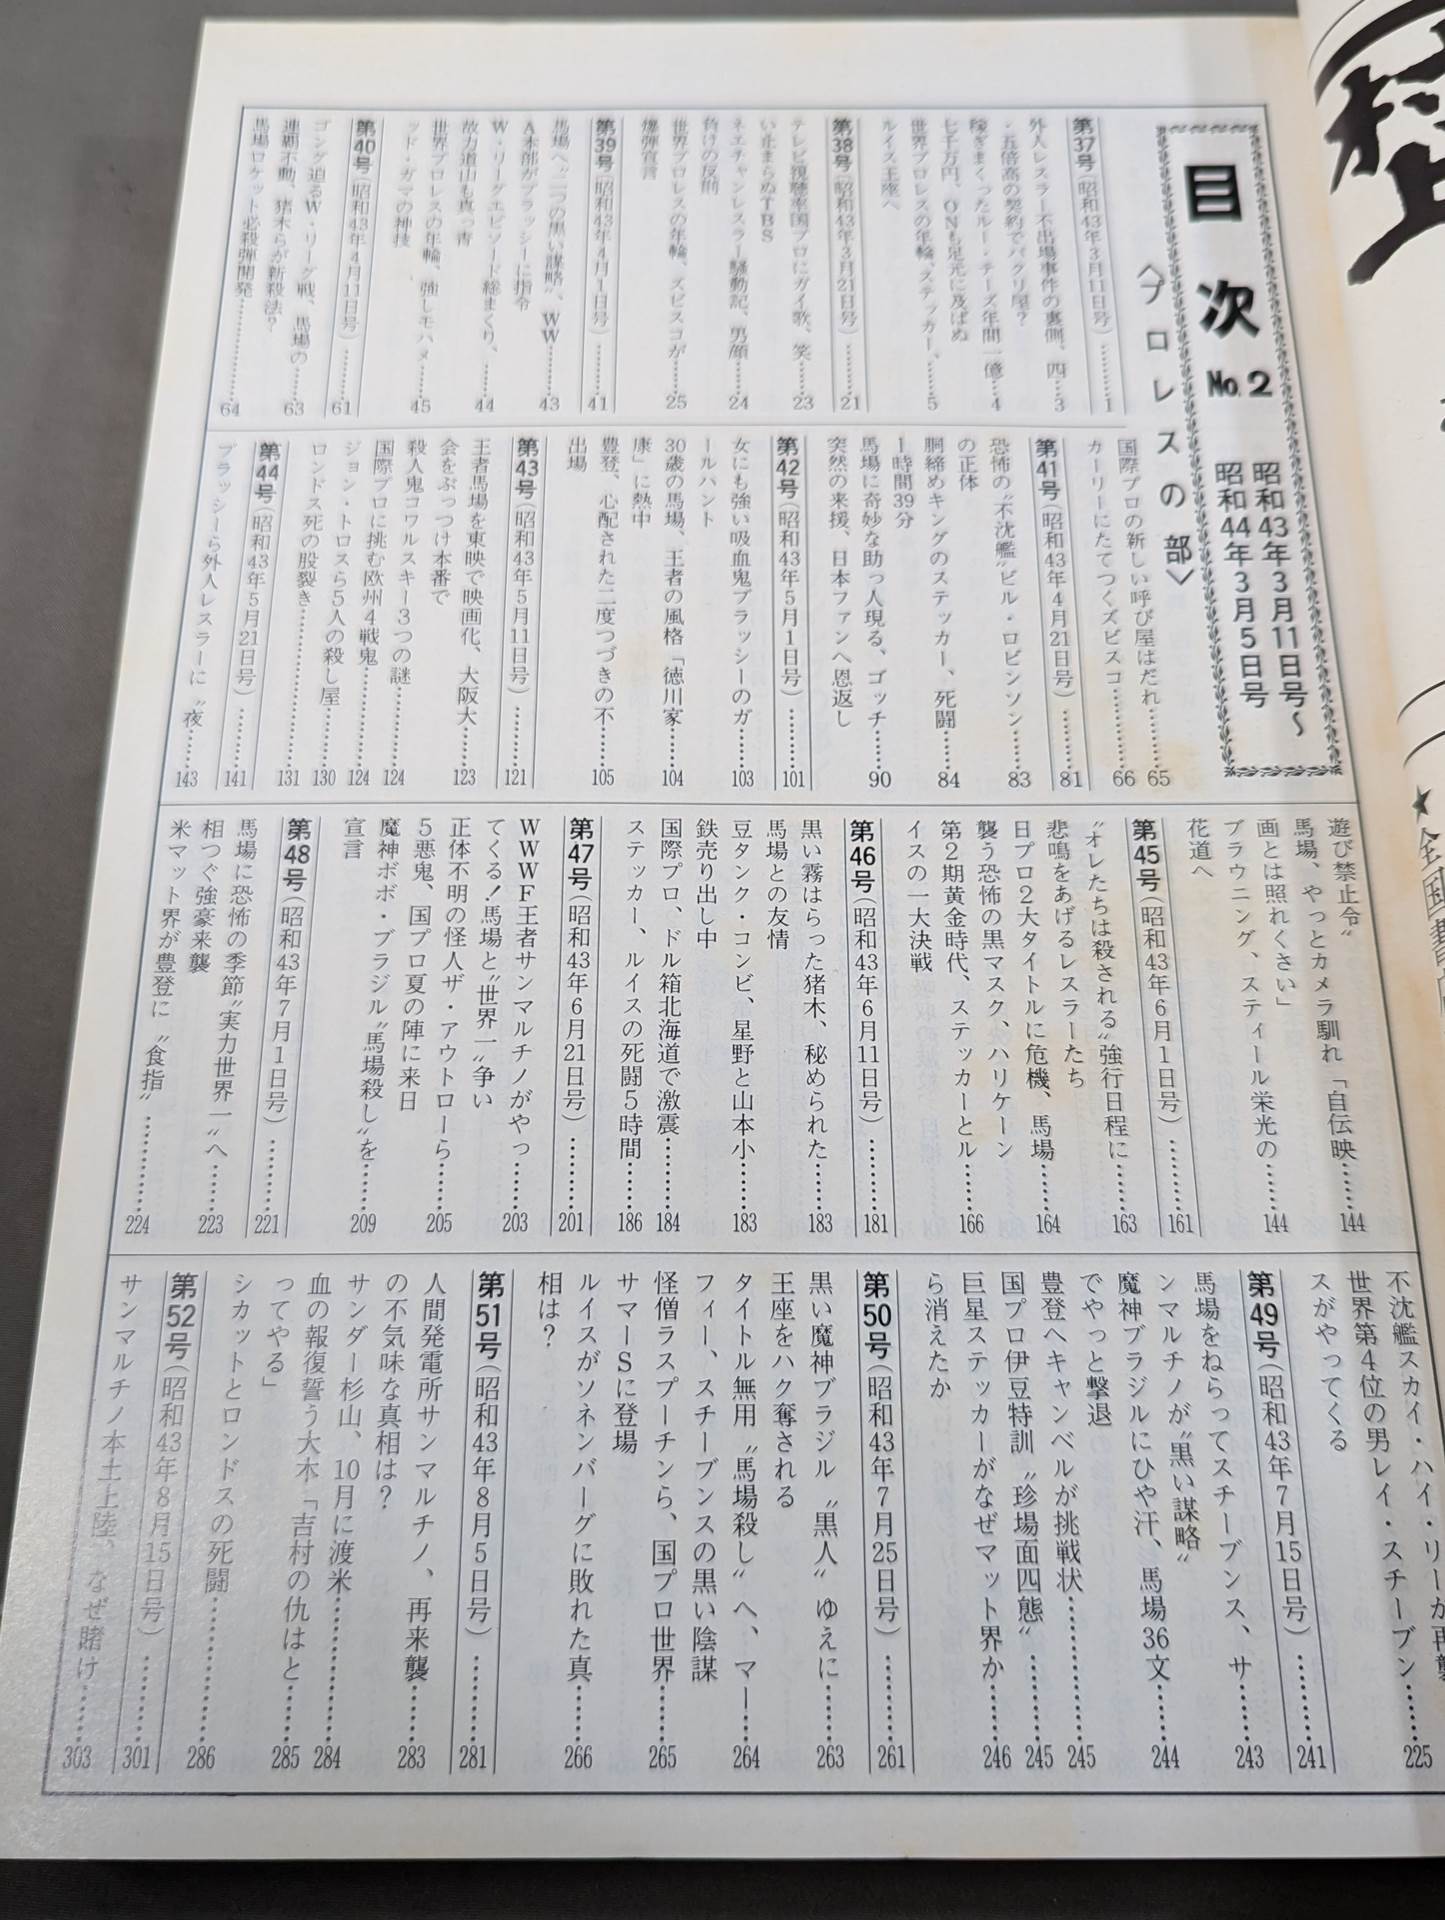 目次 No.2
昭和43年3月11日号〜
昭和44年3月5日号
〈プロレスの部〉
第37号（昭和43年3月11日号）………1
外人レスラー不出場事件の裏側、四……3
・五倍高の契約でパクリ屋？
稼ぎまくったルー・テーズ年間一億……4
七千万円、ONも足元に及ばぬ
世界プロレスの年輪、ステッカー、……5
ルイス王座へ
第38号（昭和43年3月21日号）………21
テレビ視聴率国プロにガイ歌、笑……23
い止まらぬTBS
ネエチャンレスラー騒動記、男顔……24
負けの反則
世界プロレスの年輪、ズビスコが……25
爆弾宣言
第39号（昭和43年4月1日号）………41
馬場へ〝二つの黒い謀略〟、WW……43
A本部がブラッシーに指令
W・リーグエピソード総まくり、……44
故力道山も真っ青
世界プロレスの年輪、強しモハメ……45
ッド・ガマの神技
第40号（昭和43年4月11日号）………61
ゴング迫るW・リーグ戦、馬場の……63
連覇不動、猪木らが新殺法？
馬場ロケット必殺弾開発……………64
国際プロの新しい呼び屋はだれ……65
カーリーにたてつくズビスコ……66
第41号（昭和43年4月21日号）………81
恐怖の〝不沈艦〟ビル・ロビンソン……83
の正体
胴締めキングのステッカー、死闘……84
1時間39分
馬場に奇妙な助っ人現る、ゴッチ……90
突然の来援、日本ファンへ恩返し
第42号（昭和43年5月1日号）………101
女にも強い吸血鬼ブラッシーのガ……103
ールハント
30歳の馬場、王者の風格「徳川家……104
康」に熱中
豊登、心配された二度つづきの不……105
出場
第43号（昭和43年5月11日号）………121
王者馬場を東映で映画化、大阪大……123
会をぶっつけ本番で
殺人鬼コワルスキー3つの謎………124
国際プロに挑む欧州4戦鬼…………124
ジョン・トロスら5人の殺し屋……130
ロンドス死の股裂き…………………131
第44号（昭和43年5月21日号）………141
ブラッシーら外人レスラーに〝夜……143
遊び禁止令〟
馬場、やっとカメラ馴れ「自伝映……144
画とは照れくさい」
ブラウニング、スティール栄光の……144
花道へ
第45号（昭和43年6月1日号）………161
〝オレたちは殺される〟強行日程に……163
悲鳴をあげるレスラーたち
日プロ2大タイトルに危機、馬場……164
襲う恐怖の黒マスク、ハリケーン
第2期黄金時代、ステッカーとル……166
イスの一大決戦
第46号（昭和43年6月11日号）………181
黒い霧はらった猪木、秘められた……183
馬場との友情
豆タンク・コンビ、星野と山本小……183
鉄売り出し中
国際プロ、ドル箱北海道で激震……184
ステッカー、ルイスの死闘5時間……186
第47号（昭和43年6月21日号）………201
WWWF王者サンマルチノがやっ……203
てくる！馬場と〝世界一〟争い
正体不明の怪人ザ・アウトローら……205
5悪鬼、国プロ夏の陣に来日
魔神ボボ・ブラジル〝馬場殺し〟を……209
宣言
第48号（昭和43年7月1日号）………221
馬場に恐怖の季節〝実力世界一〟へ……223
相つぐ強豪来襲
米マット界が豊登に〝食指〟…………224
不沈艦スカイ・ハイ・リーが再襲
世界第4位の男レイ・スチーブン……225
スがやってくる
第49号（昭和43年7月15日号）………241
馬場をねらってスチーブンス、サ……243
ンマルチノが〝黒い謀略〟
魔神ブラジルにひや汗、馬場36文……244
でやっと撃退
豊登へキャンベルが挑戦状…………245
国プロ伊豆特訓〝珍場面四態〟……245
巨星ステッカーがなぜマット界か……246
ら消えたか
第50号（昭和43年7月25日号）………261
黒い魔神ブラジル〝黒人〟ゆえに……263
王座をハク奪される
タイトル無用〝馬場殺し〟へ、マー……264
フィー、スチーブンスの黒い陰謀
怪僧ラスプーチンら、国プロ世界……265
サマーSに登場
ルイスがソネンバーグに敗れた真……266
相は？
第51号（昭和43年8月5日号）………281
人間発電所サンマルチノ、再来襲……283
の不気味な真相は？
サンダー杉山、10月に渡米…………284
血の報復誓う大木「吉村の仇はと……285
ってやる」
シカットとロンドスの死闘…………286
第52号（昭和43年8月15日号）………301
サンマルチノ本土上陸、なぜ賭け……303